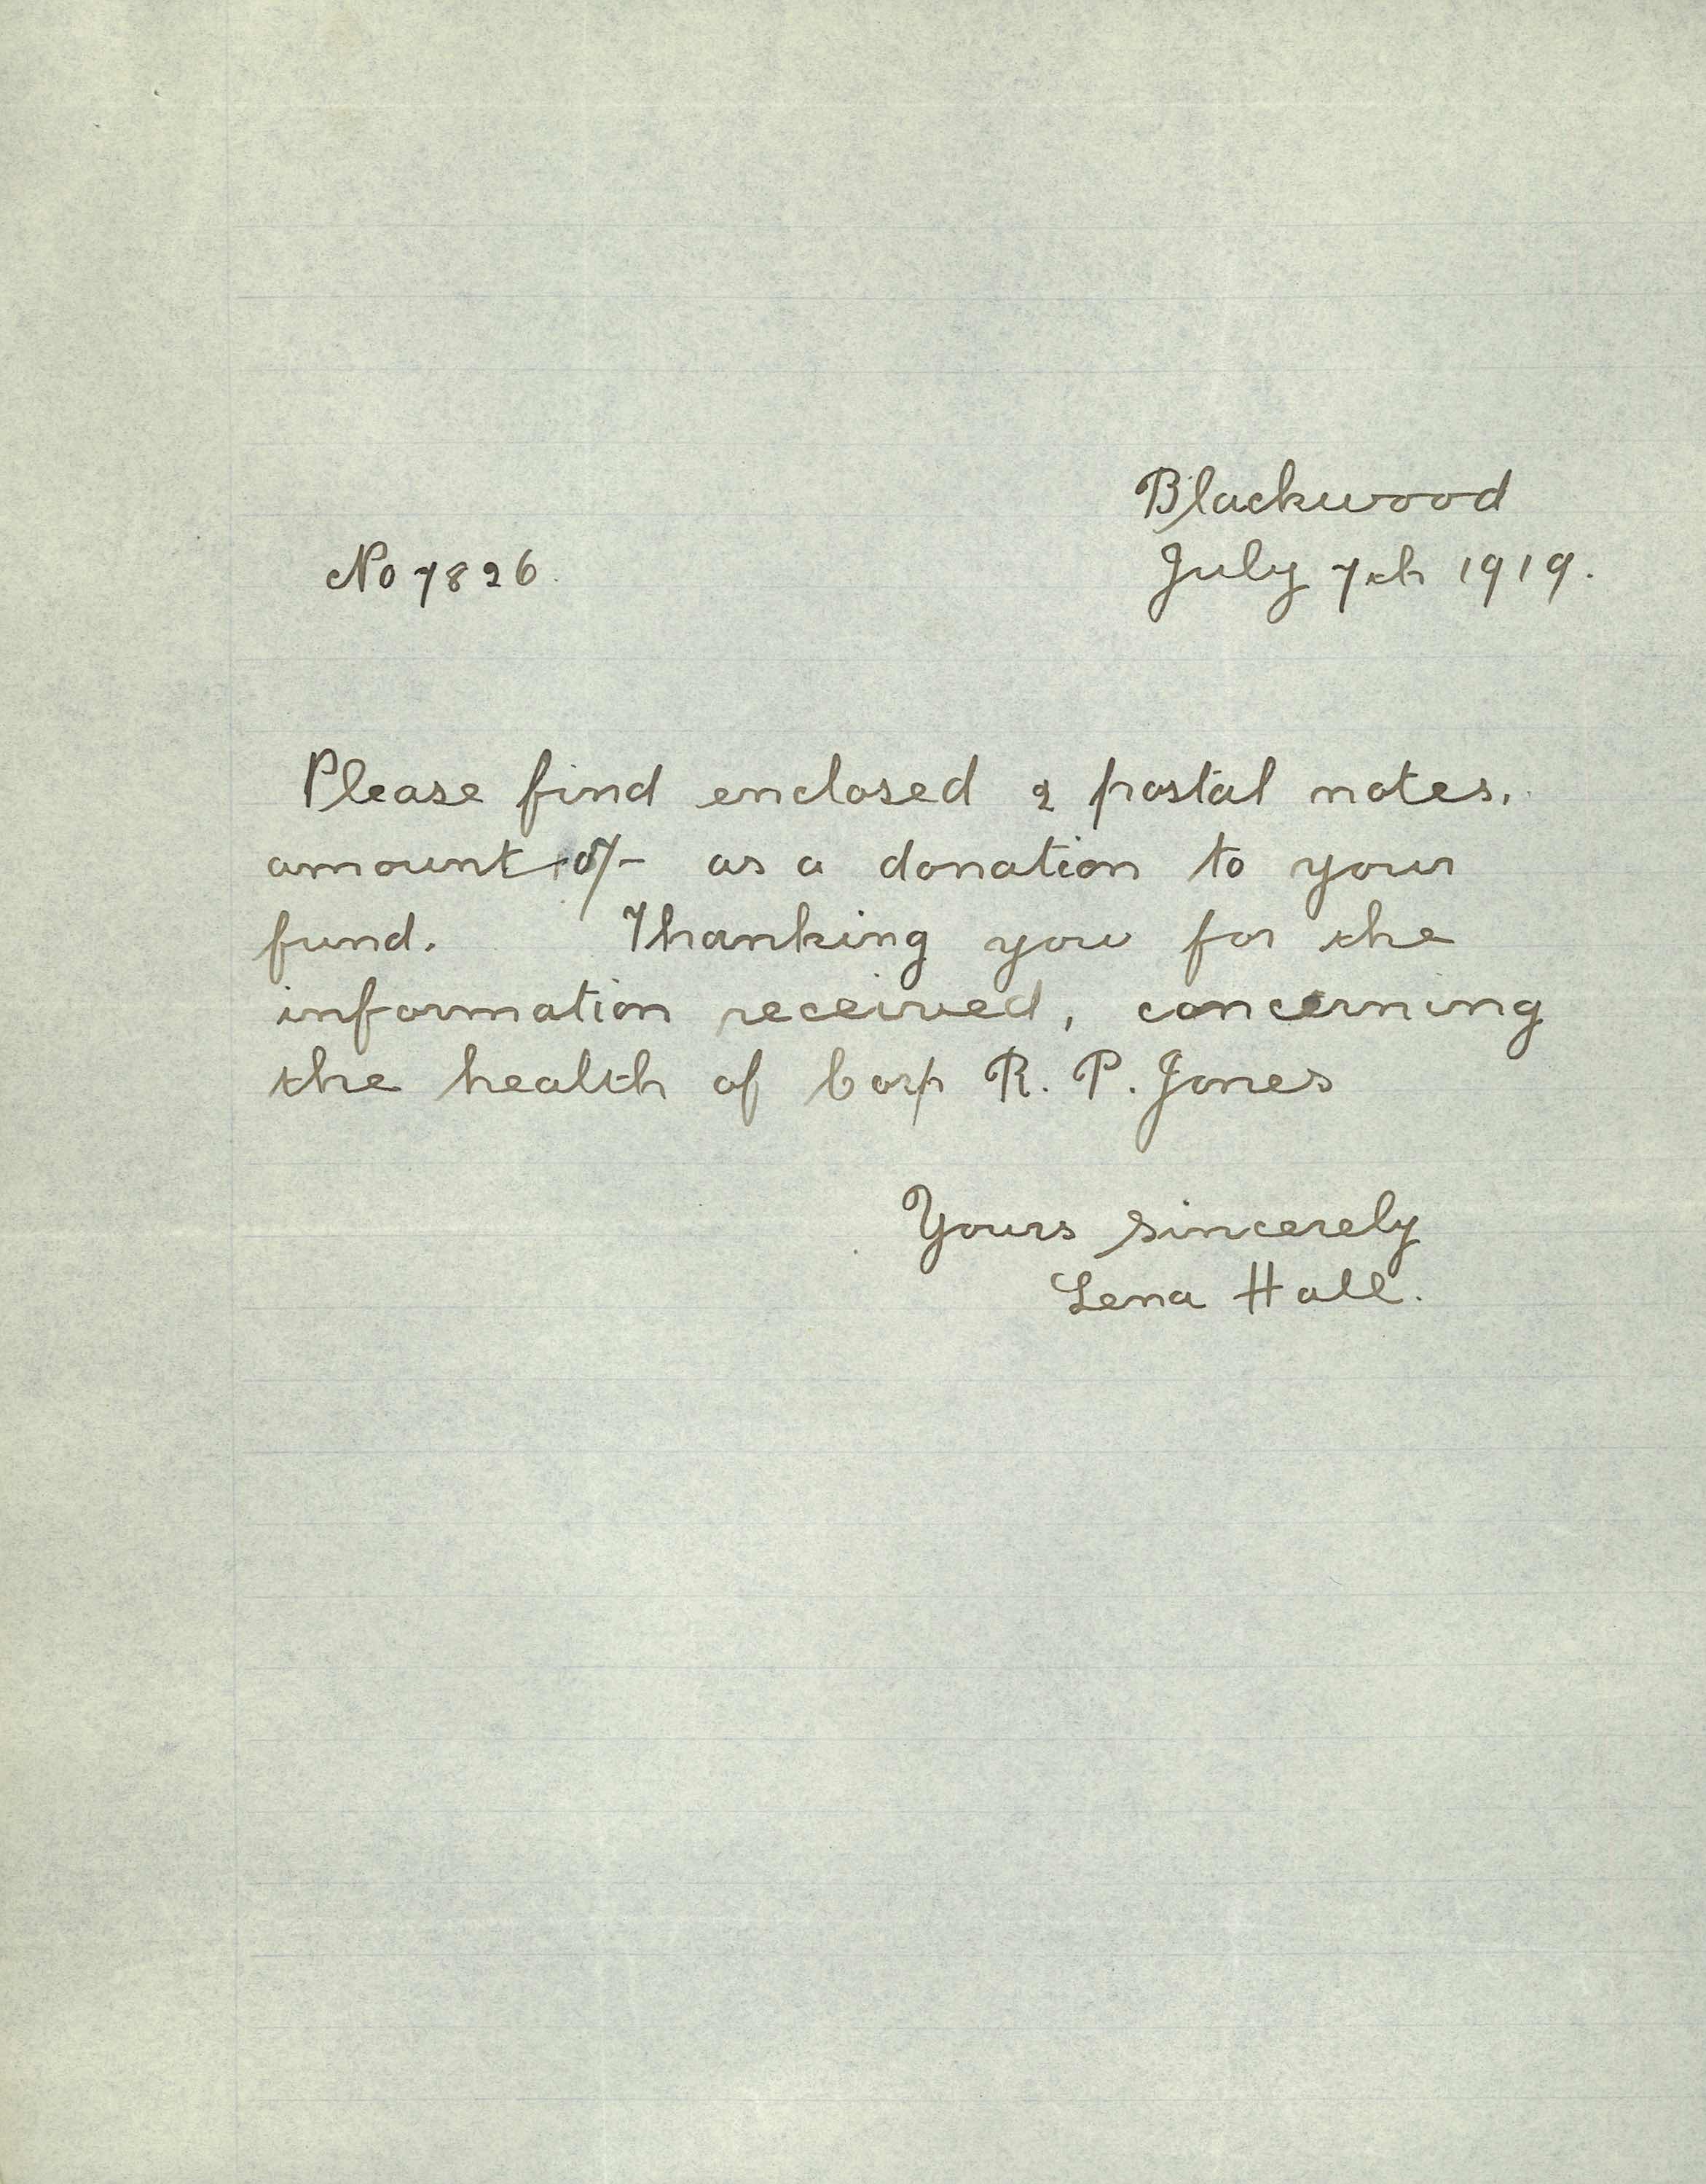 Blackwood
No 7826.
July 7th 1919.
Please find enclosed 2 postal notes.
amount as a donation to your
fund. Thanking you for the
information received, concerning
the health of Corp R. P. Jones
Yours sincerely
Lena Hall.